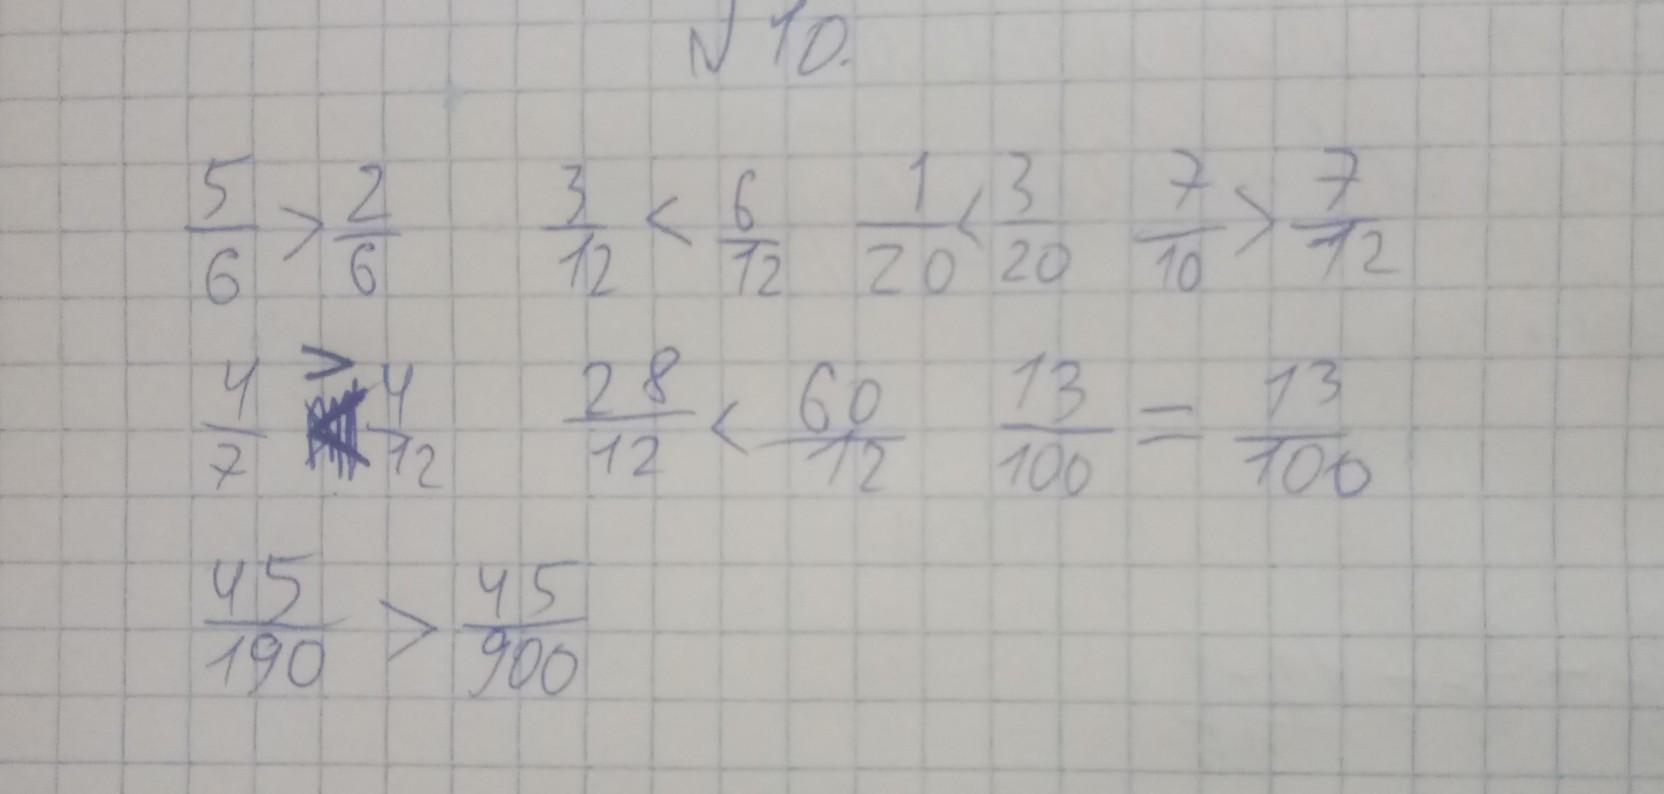 № 10.
5/6 > 2/6 3/12 < 6/12 1/20 < 3/20 7/10 > 7/12
4/7 > 4/12 28/12 < 60/12 13/100 = 13/100
45/190 > 45/900